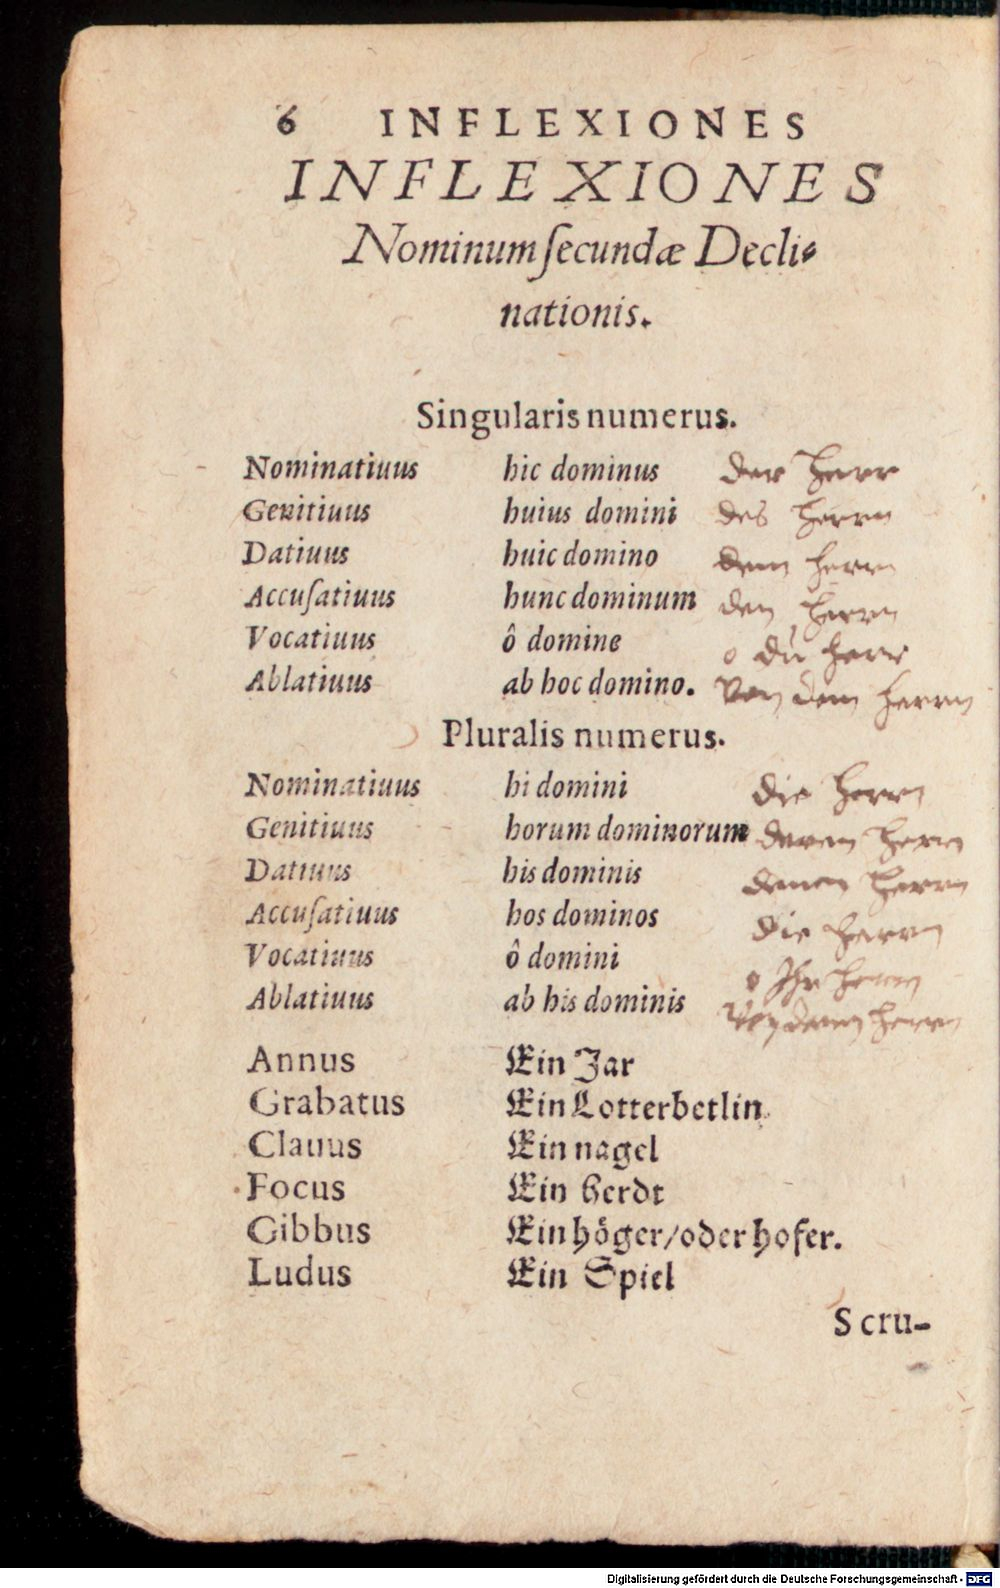 6 INFLEXIONES
INFLEXIONES
Nominum ſecundæ Decli-
nationis.
Singularis numerus.
Nominatiuus hic dominus der herr
Genitiuus huius domini des herrn
Datiuus huic domino dem herrn
Accuſatiuus hunc dominum den herrn
Vocatiuus ô domine o du herr
Ablatiuus ab hoc domino. Von dem herrn
Pluralis numerus.
Nominatiuus hi domini die herrn
Genitiuus horum dominorum deren herrn
Datiuus his dominis denen herrn
Accuſatiuus hos dominos die herrn
Vocatiuus ô domini o Ihr herrn
Ablatiuus ab his dominis Von denen herrn
Annus Ein Jar
Grabatus Ein Lotterbetlin
Clauus Ein nagel
Focus Ein herdt
Gibbus Ein höger/oder hofer.
Ludus Ein Spiel
Scru-
Digitalisierung gefördert durch die Deutsche Forschungsgemeinschaft - DFG